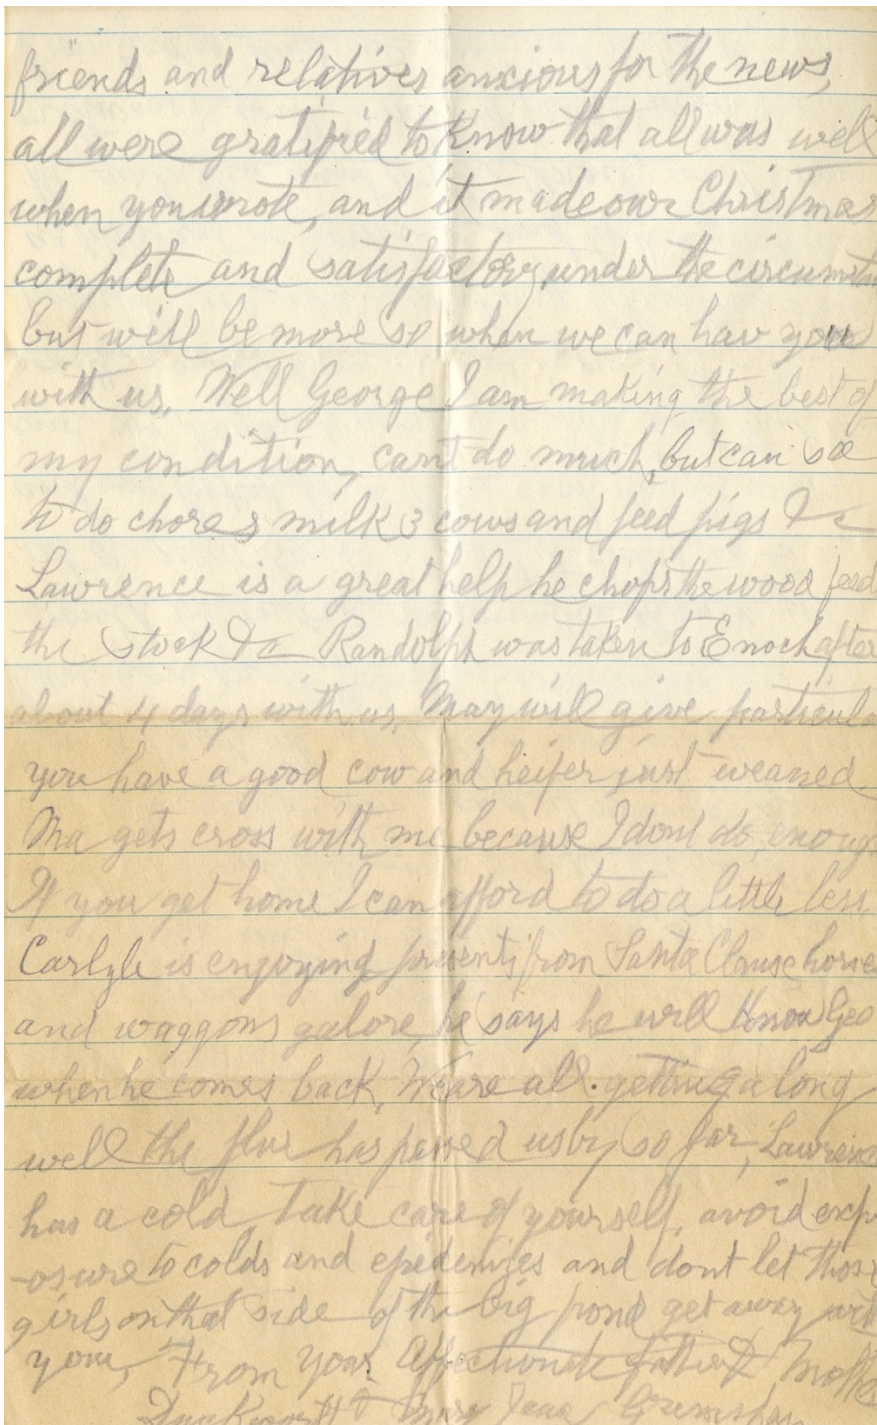 friends and relatives anxious for the news,
all were gratified to know that all was well
when you wrote, and it made our Christmas
complete and satisfactory under the circumst
but will be more so when we can hav you
with us, Well George I am making the best of
my condition, cant do much, but can see
to do chores milk 3 cows and feed pigs &c
Lawrence is a great help he chops the wood feed
the stock &c Randolph was taken to Enoch after
about 4 days with us, May will give particula
you have a good cow and heifer just weaned
Ma gets cross with me because I dont do enoug
If you get home I can afford to do a little less.
Carlyle is enjoying presents from Santa Clause horse
and waggons galore, he says he will know Geo
when he comes back, We are all getting along
well the flue has passed us by so far, Lawrence
has a cold, take care of yourself, avoid exp
-osure to colds and epidemies and dont let those
girls on that side of the big pond get away wit
you, From your Affectionate father & Mother
& Mary Jane